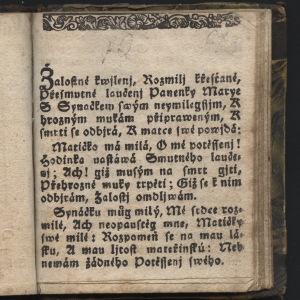 Žalostné kwjlenj, Rozmilj křesťané,
Přesmutné laučenj Panenky Marye
S Synáčkem swým neymilegssjm, K
hrozným mukám připraweným, K
smrti se odbjrá, K matce swé powjdá:
Matičko má milá, O mé potěssenj!
Hodinka nastáwá Smutného lauče-
nj; Ach! giž musým na smrt gjti,
Přehrozné muky trpěti; Giž se k nim
odbjrám, Žalostj omdljwám.
Synáčku můg milý, Mé srdce roz-
milé, Ach neopausstěg mne, Matičky
swé milé: Rozpomeň se na mau lá-
sku, A mau ljtost mateřinskú: Neb
nemám žádného Potěssenj swého.